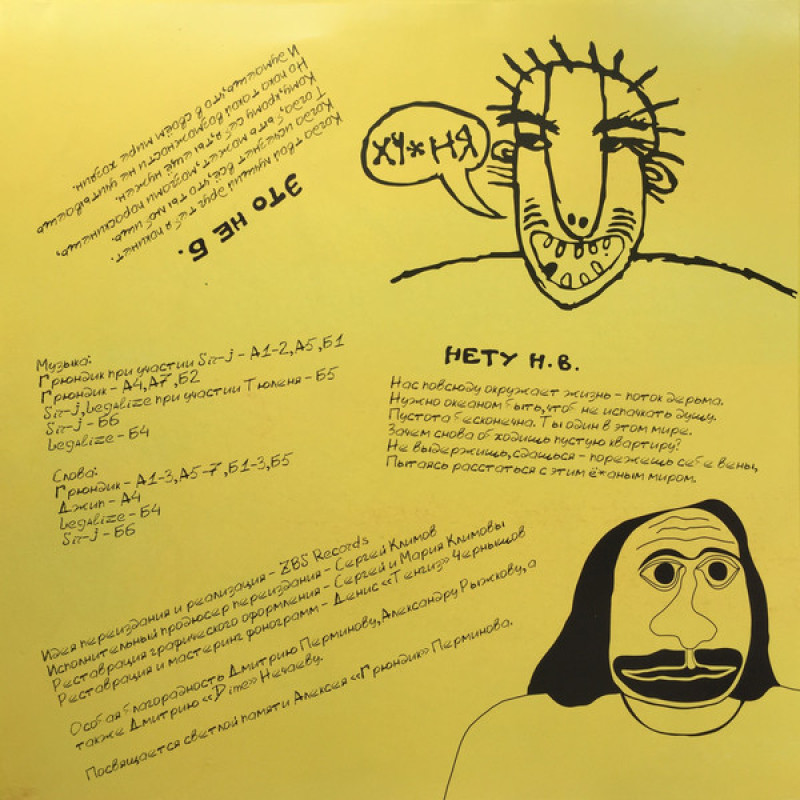 ЭТО НЕ Б.
Когда твой лучший друг тебя покинет.
Когда исчезнет всё, что ты любишь.
Тогда, быть может, мозгами пораскинешь,
Кому, кроме себя, ты ещё нужен.
Но пока такой возможности не учитываешь
И думаешь, что в своём мире хозяин.
ХУ*НЯ
Музыка:
Грюндик при участии Sir-j - А1-2, А5, Б1
Грюндик - А4, А7, Б2
Sir-j, Legalize при участии Тюленя - Б5
Sir-j - Б6
Legalize - Б4
Слова:
Грюндик - А1-3, А5-7, Б1-3, Б5
Джип - А4
Legalize - Б4
Sir-j - Б6
НЕТУ Н.В.
Нас повсюду окружает жизнь - поток дерьма.
Нужно океаном быть, чтоб не испачкать душу.
Пустота бесконечна. Ты один в этом мире.
Зачем снова обходишь пустую квартиру?
Не выдержишь, сдашься - порежешь себе вены,
Пытаясь расстаться с этим ё*аным миром.
Идея переиздания и реализация - ZBS Records
Исполнительный продюсер переиздания - Сергей Климов
Реставрация графического оформления - Сергей и Мария Климовы
Реставрация и мастеринг фонограмм - Денис «Тенгиз» Чернышов
Особая благородность Дмитрию Перминову, Александру Рыжкову, а
также Дмитрию «Dime» Нечаеву.
Посвящается светлой памяти Алексея «Грюндик» Перминова.